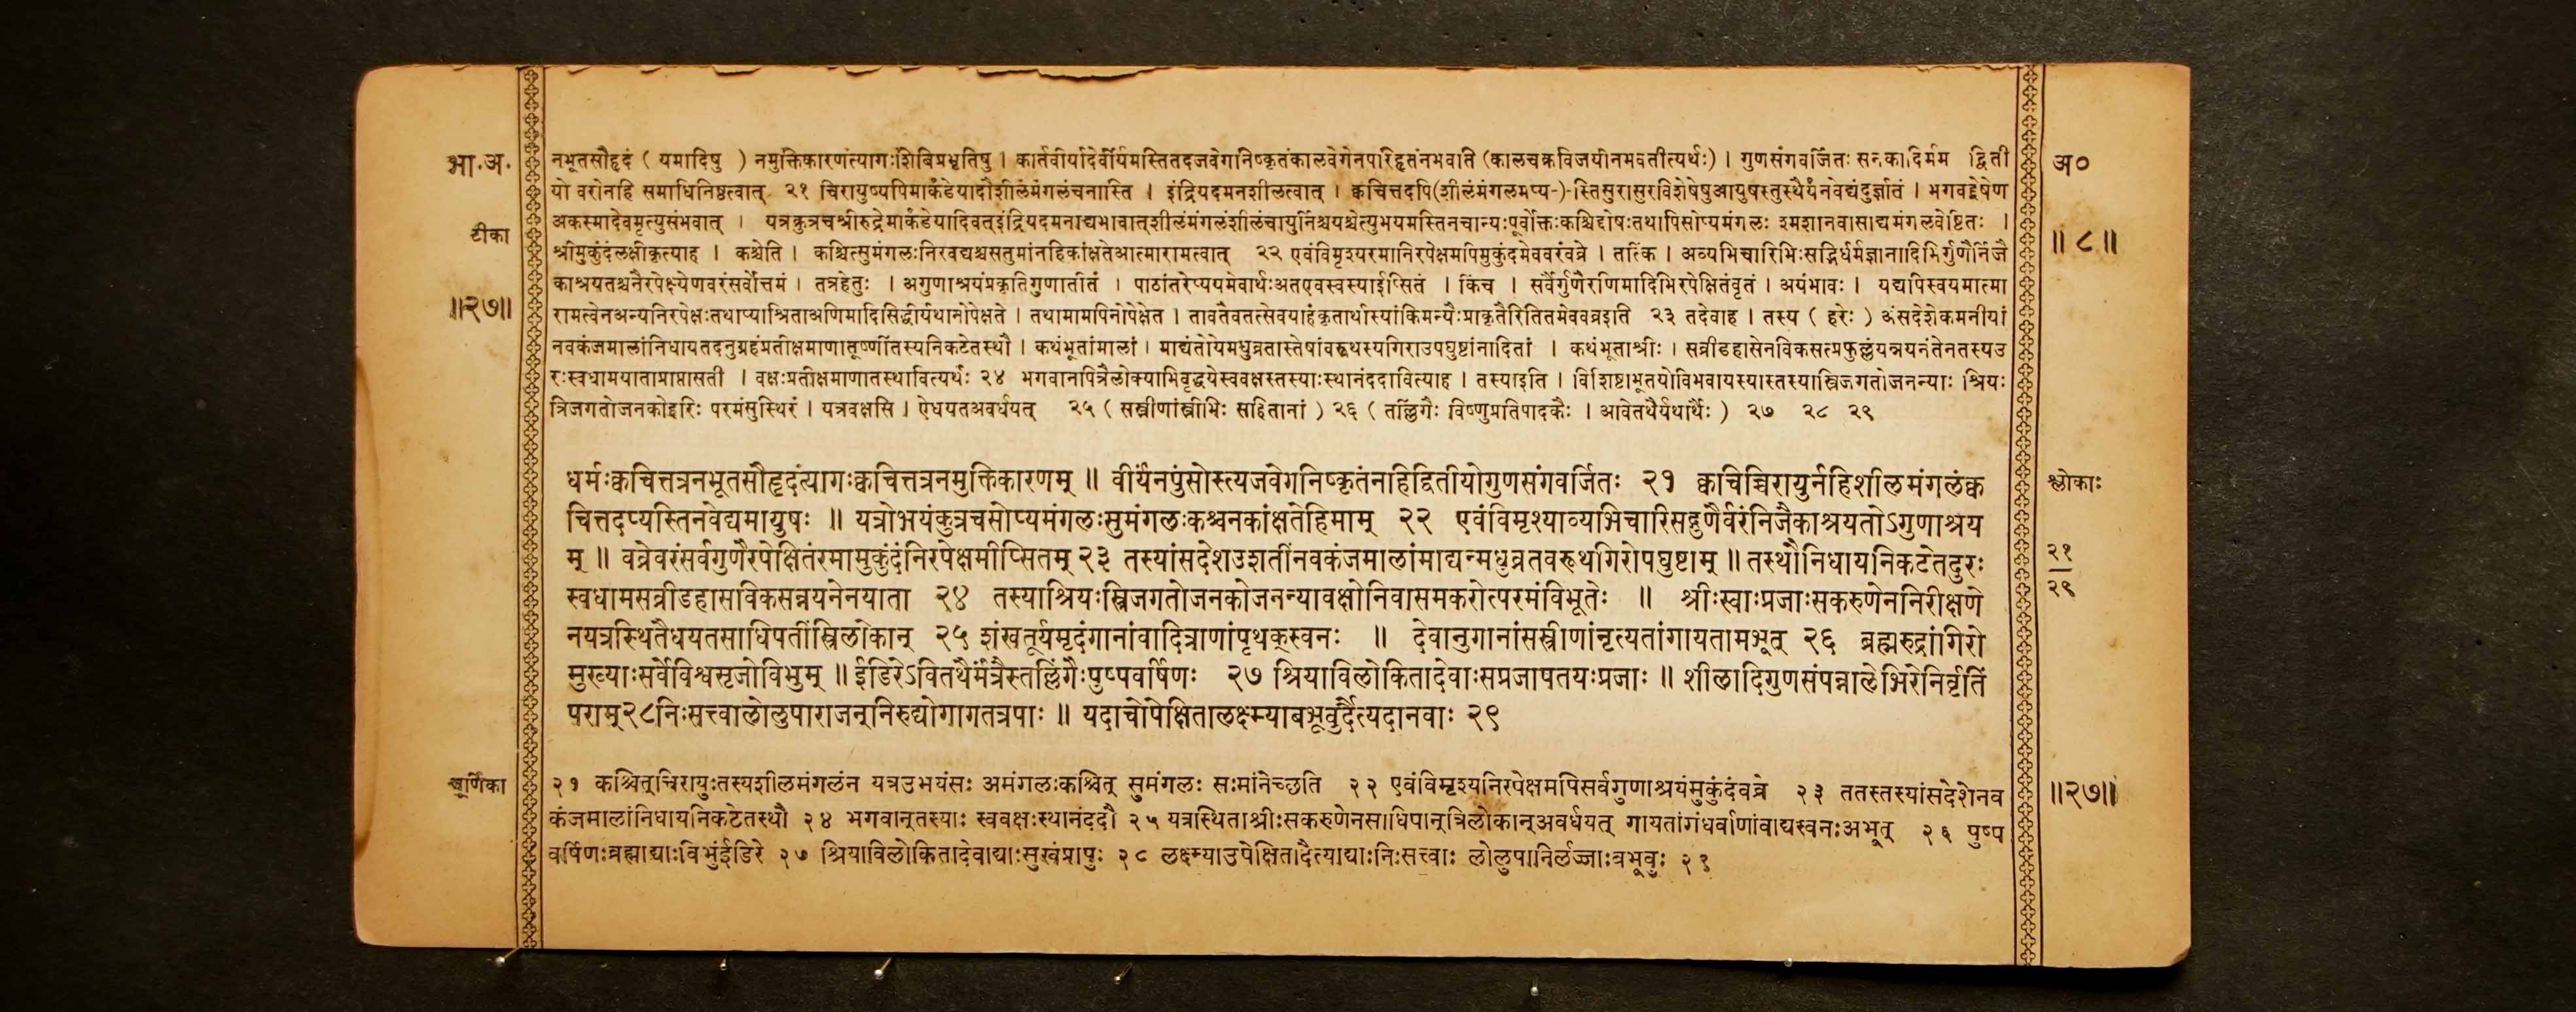 भा.अ.
टीका
॥२७॥
नभूतसौहृदं ( यमादिषु ) नमुक्तिकारणंत्यागःशिबिप्रभृतिषु । कार्तवीर्यादेर्वीर्यमस्तितदजवेगनिष्कृतंकालवेगेनपरिहृतंनभवति (कालचक्रविजयीनभवतीत्यर्थः) । गुणसंगवर्जितः सनकादिर्मम द्विती
यो वरोनहि समाधिनिष्ठत्वात् २१ चिरायुष्यपिमार्कंडेयादौशीलंमंगलंचनास्ति । इंद्रियदमनशीलत्वात् । क्वचित्तदपि(शीलंमंगलमप्य-)-स्तिसुरासुरविशेषेषुआयुषस्तुस्थैर्यंनवेद्यंदुर्ज्ञातं । भगवद्द्वेषेण
अकस्मादेवमृत्युसंभवात् । यत्रकुत्रचश्रीरुद्रेमार्कंडेयादिवत्इंद्रियदमनाद्यभावात्शीलंमंगलंशीलंचायुर्निश्चयश्चेत्युभयमस्तिनचान्यःपूर्वोक्तःकश्चिद्दोषःतथापिसोप्यमंगलः श्मशानवासाद्यमंगलवेष्टितः ।
श्रीमुकुंदंलक्षीकृत्याह । कश्चेति । कश्चित्सुमंगलःनिरवद्यश्चसतुमांनहिकांक्षतेआत्मारामत्वात् २२ एवंविमृश्यरमानिरपेक्षमपिमुकुंदमेववरंवव्रे । तत्किं । अव्यभिचारिभिःसद्भिर्धर्मज्ञानादिभिर्गुणैर्निजै
काश्रयतश्चनैरपेक्ष्येणवरंसर्वोत्तमं । तत्रहेतुः । अगुणाश्रयंप्रकृतिगुणातीतं । पाठांतरेप्ययमेवार्थःअतएवस्वस्याईप्सितं । किंच । सर्वैर्गुणैरणिमादिभिरपेक्षितंवृतं । अयंभावः । यद्यपिस्वयमात्मा
रामत्वेनअन्यनिरपेक्षःतथाप्याश्रिताअणिमादिसिद्धीर्यथानोपेक्षते । तथामामपिनोपेक्षेत । तावतैवतत्सेवयाहंकृतार्थास्यांकिमन्यैःप्राकृतैरितितमेववव्रइति २३ तदेवाह । तस्य ( हरेः ) अंसदेशेकमनीयां
नवकंजमालांनिधायतदनुग्रहंप्रतीक्षमाणातूष्णींतस्यनिकटेतस्थौ । कथंभूतांमालां । माद्यंतोयेमधुव्रतास्तेषांवरूथस्यगिराउपघुष्टांनादितां । कथंभूताश्रीः । सव्रीडहासेनविकसत्प्रफुल्लंयन्नयनंतेनतस्यउ
रःस्वधामयाताप्राप्तासती । वक्षःप्रतीक्षमाणातस्थावित्यर्थः २४ भगवानपित्रैलोक्याभिवृद्धयेस्ववक्षस्तस्याःस्थानंददावित्याह । तस्याइति । विशिष्टाभूतयोविभवायस्यास्तस्यास्त्रिजगतोजनन्याः श्रियः
त्रिजगतोजनकोहरिः परमंसुस्थिरं । यत्रवक्षसि । ऐधयतअवर्धयत् २५ ( सस्त्रीणांस्त्रीभिः सहितानां ) २६ ( तल्लिंगैः विष्णुप्रतिपादकैः । आवेतथैर्यथार्थैः ) २७ २८ २९
अ०
॥८॥
धर्मःक्वचित्तत्रनभूतसौहृदंत्यागःक्वचित्तत्रनमुक्तिकारणम् ॥ वीर्यंनपुंसोस्त्यजवेगनिष्कृतंनहिद्वितीयोगुणसंगवर्जितः २१ क्वचिच्चिरायुर्नहिशीलमंगलंक्व
चित्तदप्यस्तिनवेद्यमायुषः ॥ यत्रोभयंकुत्रचसोप्यमंगलःसुमंगलःकश्चनकांक्षतेहिमाम् २२ एवंविमृश्याव्यभिचारिसद्गुणैर्वरंनिजैकाश्रयतोऽगुणाश्रय
म् ॥ वव्रेवरंसर्वगुणैरपेक्षितंरमामुकुंदंनिरपेक्षमीप्सितम् २३ तस्यांसदेशउशतींनवकंजमालांमाद्यन्मधुव्रतवरूथगिरोपघुष्टाम् ॥ तस्थौनिधायनिकटेतदुरः
स्वधामसव्रीडहासविकसन्नयनेनयाता २४ तस्याश्रियःस्त्रिजगतोजनकोजनन्यावक्षोनिवासमकरोत्परमंविभूतेः ॥ श्रीःस्वाःप्रजाःसकरुणेननिरीक्षणे
नयत्रस्थितैधयतसाधिपतींस्त्रिलोकान् २५ शंखतूर्यमृदंगानांवादित्राणांपृथक्स्वनः ॥ देवानुगानांसस्त्रीणांनृत्यतांगायतामभूत् २६ ब्रह्मरुद्रांगिरो
मुख्याःसर्वेविश्वसृजोविभुम् ॥ ईडिरेऽवितथैर्मंत्रैस्तल्लिंगैःपुष्पवर्षिणः २७ श्रियाविलोकितादेवाःसप्रजापतयःप्रजाः ॥ शीलादिगुणसंपन्नालेभिरेनिर्वृतिं
पराम्२८निःसत्त्वालोलुपाराजन्निरुद्योगागतत्रपाः ॥ यदाचोपेक्षितालक्ष्म्याबभूवुर्दैत्यदानवाः २९
श्लोकाः
२१
२९
चूर्णिका
२१ कश्चित्चिरायुःतस्यशीलमंगलंन यत्रउभयंसः अमंगलःकश्चित् सुमंगलः सःमांनेच्छति २२ एवंविमृश्यनिरपेक्षमपिसर्वगुणाश्रयंमुकुंदंवव्रे २३ ततस्तस्यांसदेशेनव
कंजमालांनिधायनिकटेतस्थौ २४ भगवान्तस्याः स्ववक्षःस्थानंददौ २५ यत्रस्थिताश्रीःसकरुणेनसाधिपान्त्रिलोकान्अवर्धयत् गायतांगंधर्वाणांवाद्यस्वनःअभूत् २६ पुष्प
वर्षिणःब्रह्माद्याःविभुंईडिरे २७ श्रियाविलोकितादेवाद्याःसुखंप्रापुः २८ लक्ष्म्याउपेक्षितादैत्याद्याःनिःसत्त्वाः लोलुपानिर्लज्जाःबभूवुः २९
॥२७॥